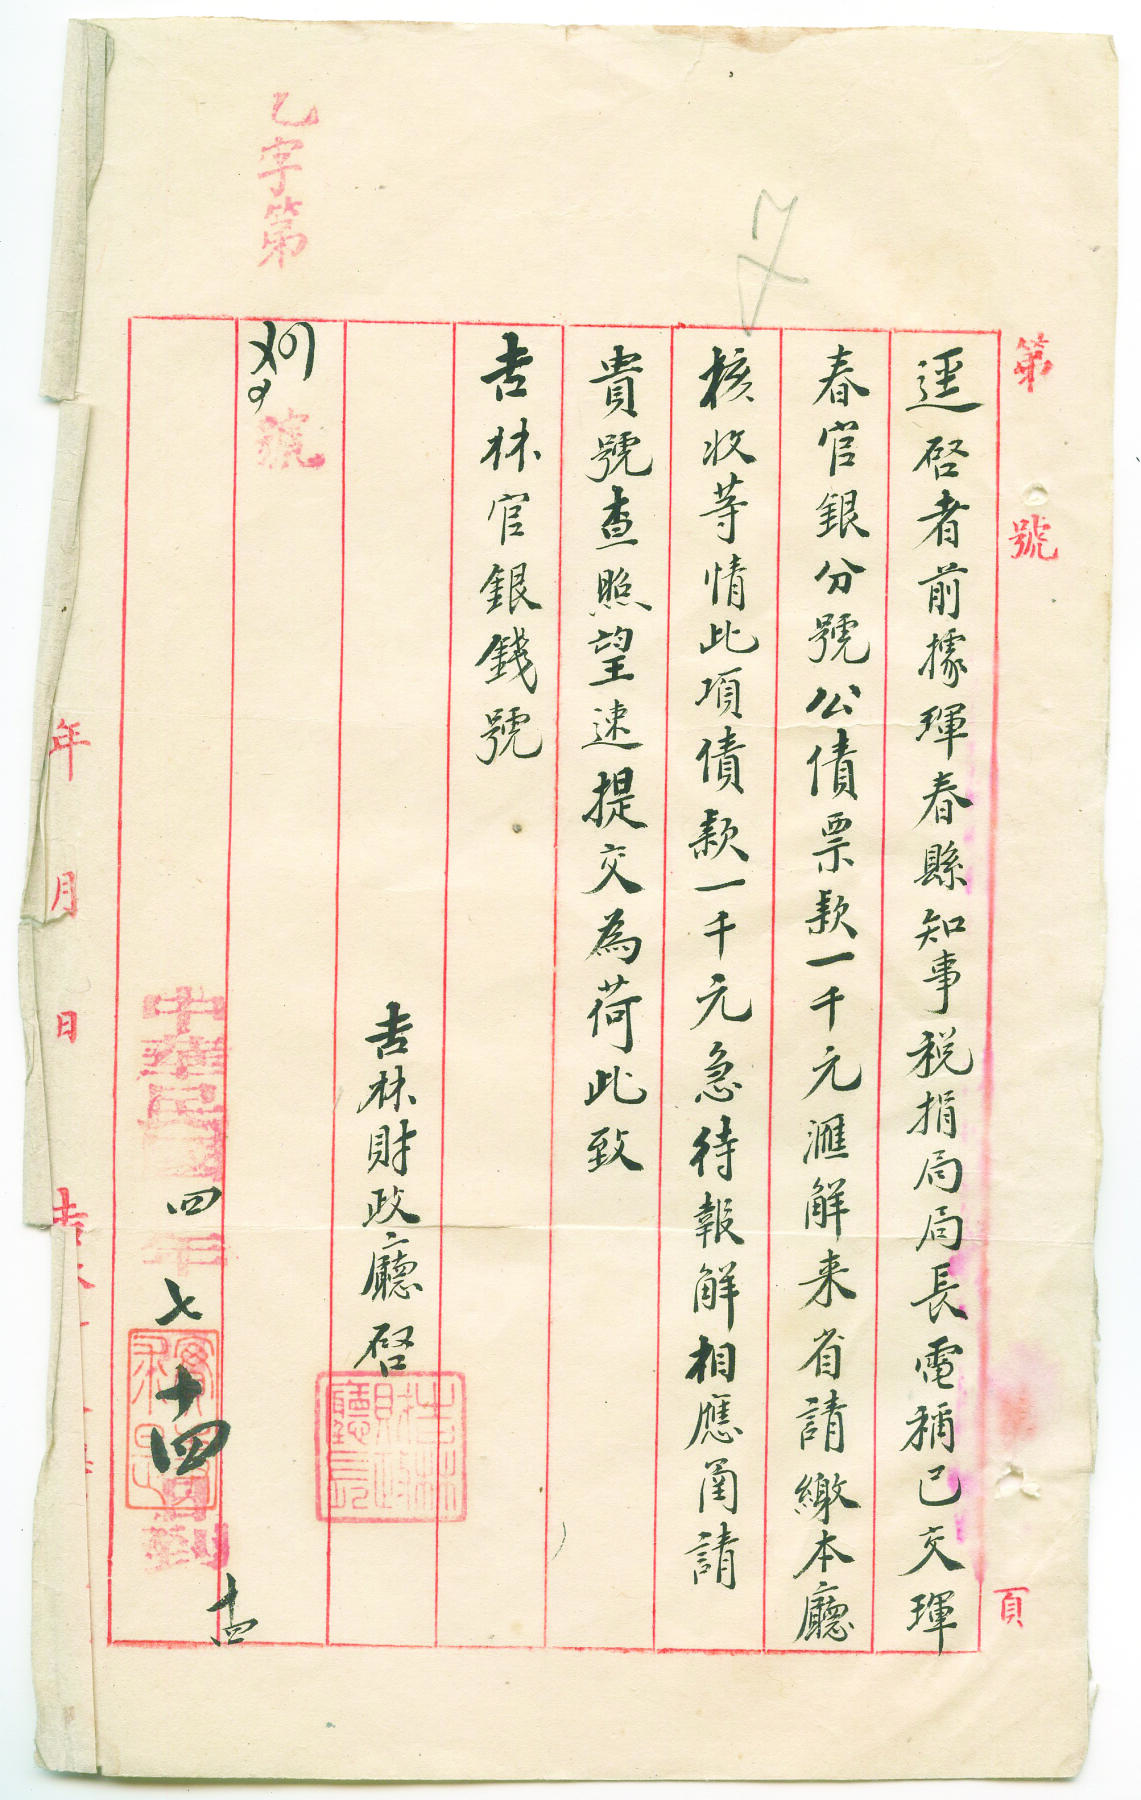 第 號 頁
逕啓者前據琿春縣知事税捐局局長電稱已交琿
春官銀分號公債票款一千元滙解来省請繳本廳
核收等情此項債款一千元急待報解相應函請
貴號查照望速提交為荷此致
吉林官銀錢號
吉林財政廳啓
吉林財政廳長
乙字第
號
中華民國四年七月十四日到
十四
年 月 日
7